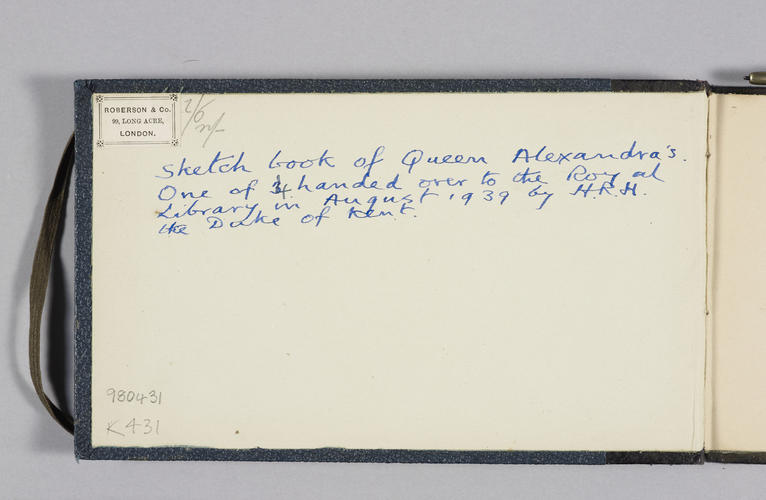 ROBERSON & Co.
99, LONG ACRE,
LONDON.
2/6
Sketch book of Queen Alexandra's.
One of 4 handed over to the Royal
Library in August 1939 by H.R.H.
the Duke of Kent.
980431
K431